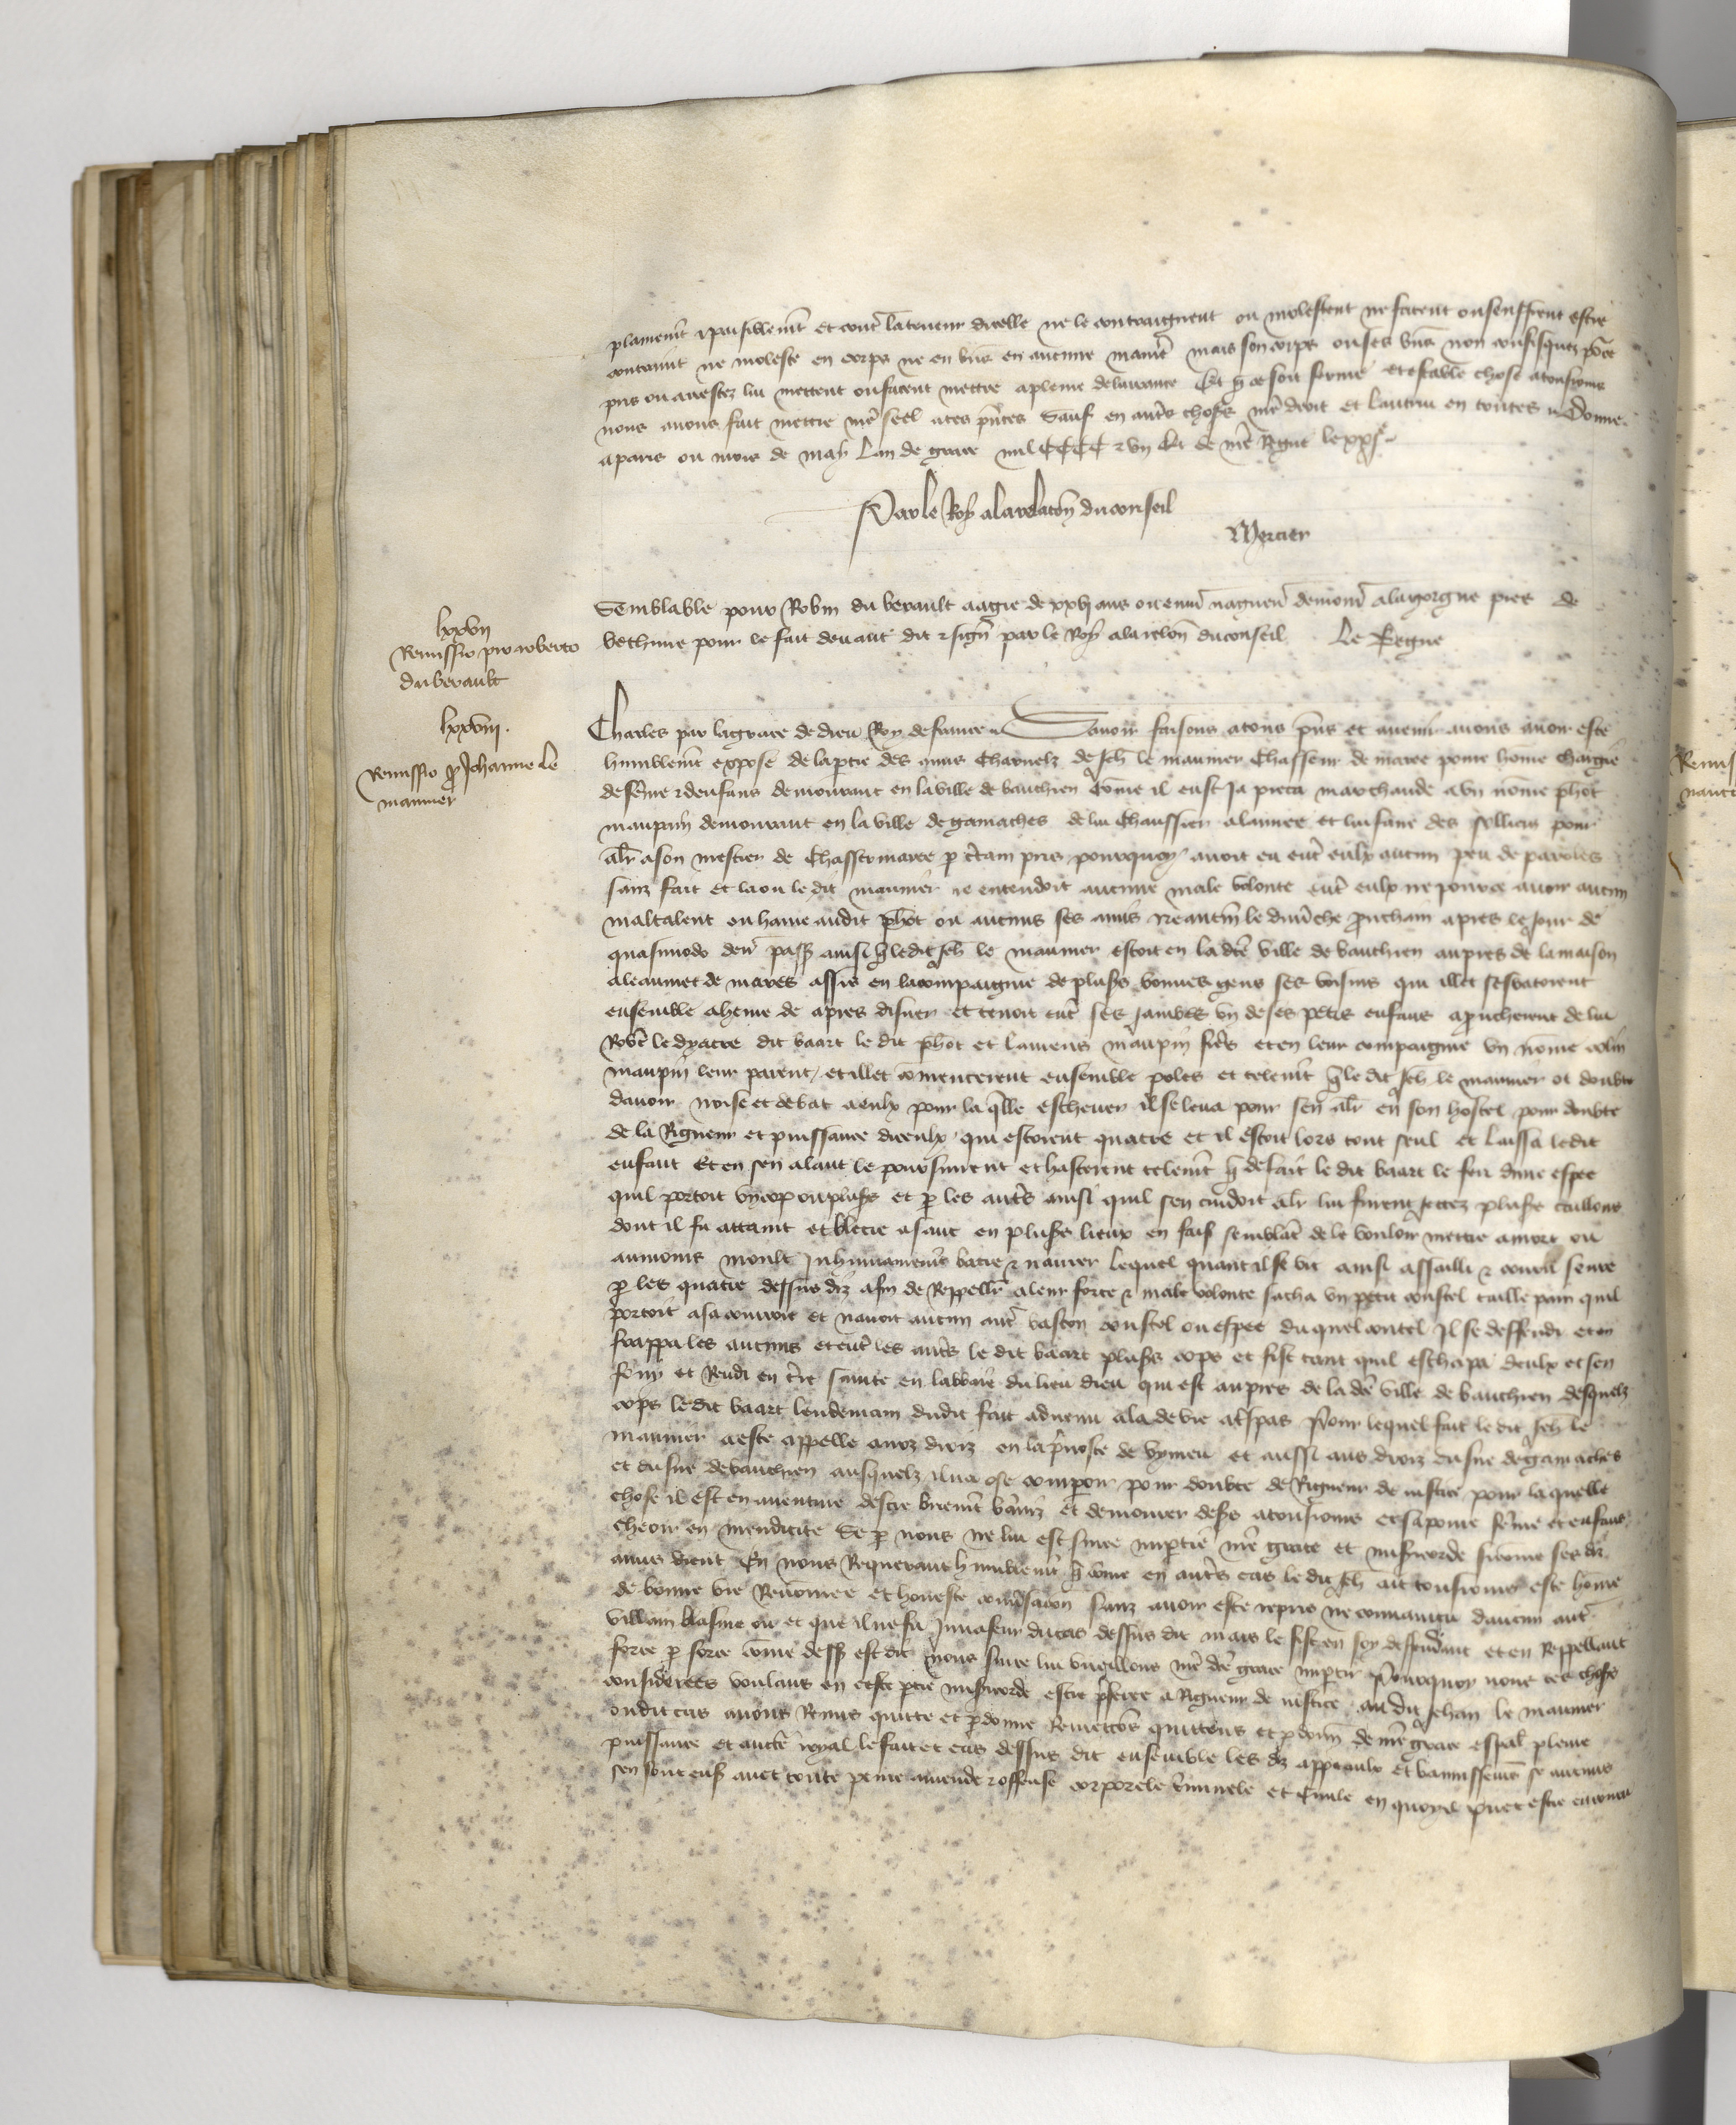 plainemēt & paisiblemēt et cont̄ la teneur dicelle ne le contraignent ou molestent ne facent ou seuffrent estre
contraint ne moleste en corps ne en biēs en aucune manīe mais son corps ou ses biēs non confisquez po̾ ce
pris ou arrestez lui mettent ou facent mettre a pleine deliurance Et q̄ ce soit ferme et estable chose a tousiours
nous auons fait mettre nr̄e seel a ces p̄ntes Sauf en aut̄s choses nr̄e droit et lautrui en toutes Donne
a paris ou mois de may Lan de grace mil CCCC & vn Et de nr̄e Regne le xxjᵉ
Par le Roy a la relacōn du conseil
Mercier
lxxvij
Remissio pro roberto
du berault
Semblable pour Robin du berault aagie de xxvj ans ou enuir̄ nagueīr demour̄ a la gorgne pres de
bethune pour le fait deuant dit & sign̄ par le Roy a la relōn du conseil Le Begue
lxxviij.
Remissio p̄ Johanne le
maunier
Charles par la grace de dieu Roy de france Sauoir faisons a tous p̄ns et auenir auons auoir este
humblemēt expose de la p̄tie des amis charnelz de Jeh̄ le maunier chasseur de maree poure hōme chargie
de fēme & denfans demourant en la ville de bauchien cōme il eust ja pieca marchande a vn nōme ph̄ot
maupin demourant en la ville de gamaches de lui chaussier a lannee et lui faire des solliers pour
al̄r a son mestier de chassemaree p̄ c̄tain pris pourquoy auoit eu ent̄ eulx aucun peu de paroles
sanz fait et la ou le dit maunier ne entendoit aucune male volente ent̄ eulx ne pource auoir aucun
maltalent ou haine audit ph̄ot ou aucuns ses amis Neantm̄ le dimēche p̄uchain apres le jour de
quasimodo der̄ passe ainsi q̄ ledit Jeh̄ le maunier estoit en la dc̄e ville de bauchien aupres de la maison
aleaumet de mares assis en la compaignie de plus̄s bonnes gens ses voisins qui illec sesbatoient
ensemble a heure de apres disner et tenoit ent̄ ses jambes vn de ses petis enfans ap̄ucherent de lui
Rob̄t le dyacre dit baart le dit ph̄ot et Laurens maupin fr̄es et en leur compaignie vn nōme colin
maupin leur parent, et illec cōmencerent ensemble p̄oles et telemt̄ q̄ le dit Jeh̄ le maunier ot doubte
dauoir noise et debat a eulx pour la q̄lle escheuer il se leua pour sen al̄r en son hostel pour doubte
de la Rigueur et puissance diceulx qui estoient quatre et il estoit lors tout seul et laissa ledit
enfant Et en sen alant le poursuirent et hasterent telemt̄ q̄ de fait le dit baart le feri dune espee
quil portoit vn cop ou plus̄s et p̄ les aut̄s ainsi quil sen cuidoit al̄r lui furent jettez plus̄s caillous
dont il fu attaint et blecie a sanc en plus̄s lieux en fais̄ semblāt de le vouloir mettre a mort ou
aumoins moult Inhumainemt̄ batre & naurer Lequel quant il se vit ainsi assailli & couru seure
p̄ les quatre dessus diz afin de Reppell̄r a leur force & male volente sacha vn petit coustel taille pain quil
portoit a sa courroie et nauoit aucun aut̄ baston coustel ou espee du quel coutel Il se deffendi et en
frappa les aucuns et ent̄ les aut̄s le dit baart plus̄s cops et fist tant quil eschapa deulx et sen
fouy et Rendi en t̄re sainte en labbaie du lieu dieu qui est aupres de la dc̄e ville de bauchien desquelz
cops le dit baart lendemain dudit fait aduenu ala de vie a t̄spas Pour lequel fait le dit Jeh̄ le
maunier a este appelle aux droiz en la p̄uoste de vymeu et aussi aus droiz du sire de gamaches
et du sire de bauchien ausquelz il na ose comparoir pour doubte de Rigueur de iustice pour la quelle
chose il est en auenture destre briemt̄ baniz et demourer des̄s a tousiours et sa poure fēme et enfans
cheoir en mendicite Se p̄ nous ne lui est s̄ ce imp̄tie nr̄e grace et misericorde si cōme ses diz
amis dient En nous Requerant humblemt̄ q̄ cōme en aut̄s cas le dit Jeh̄ ait tousiours este hōme
de bonne vie Renōmee et honeste conu̾sacōn sanz auoir este repris ne conuaincu daucun aut̄
villain blasme ou et que il ne fu Inuaseur du cas dessus dit mais le fist en soy deffendant et en Reppellant
force p̄ force cōme dess̄ est dit nous s̄ ce lui vueillons nr̄e dc̄e grace imp̄tir Pourquoy nous ces choses
considerees voulans en ceste p̄tie misericorde estre p̄feree a Rigueur de iustice au dit Jehan le maunier
ou dit cas auons Remis quitte et p̄donne Remettōs quittons et p̄donn̄ de nr̄e grace esp̄al pleine
puissance et aucte̾ royal le fait et cas dessus dit ensemble les diz appeaulx et bannissemēs se aucuns
sen sont ens̄ auec toute peine amende & offense corporele c̄minele et ciuile en quoy il puet estre encouru